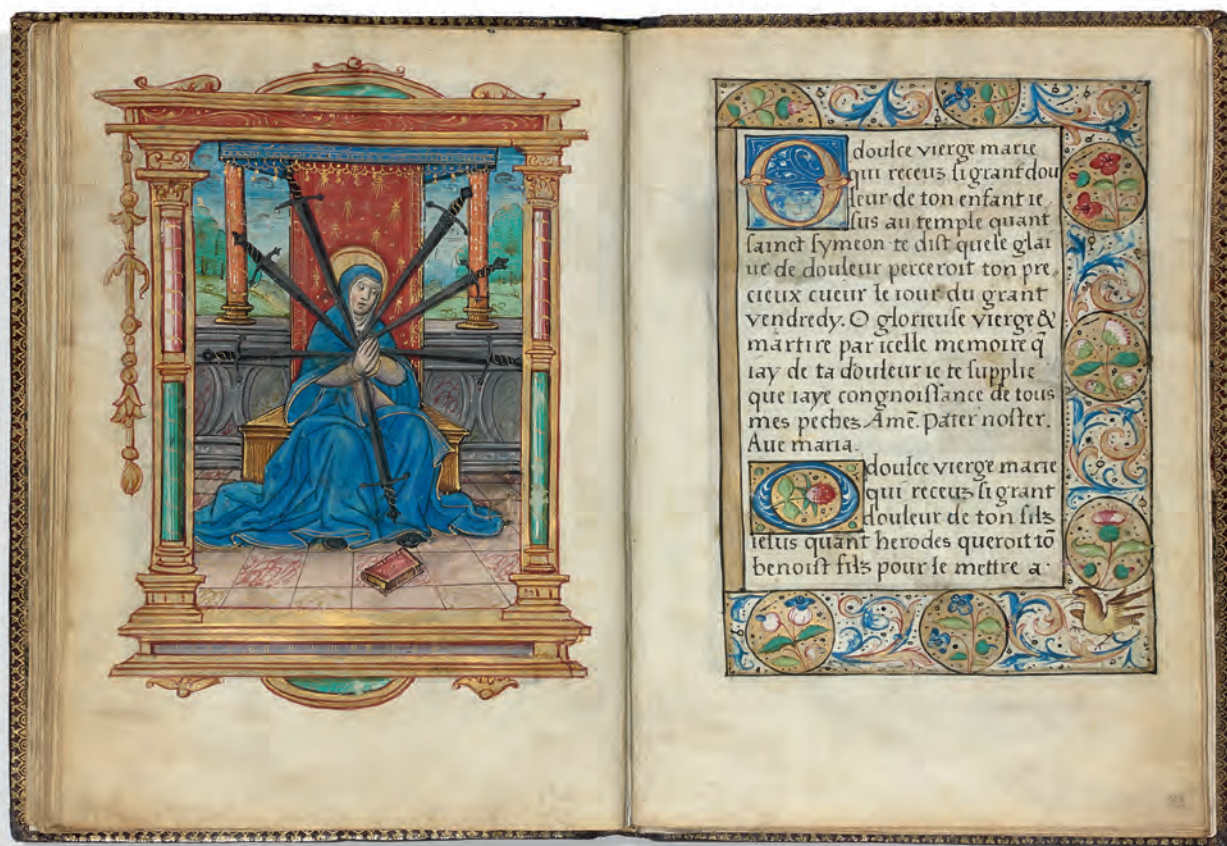 O doulce vierge marie
qui receuz si grant dou
leur de ton enfant ie
sus au temple quant
sainct symeon te dist que le glai
ue de douleur perceroit ton pre,,
cieux cueur le iour du grant
vendredy. O glorieuse vierge &
martire par icelle memoire q̄
iay de ta douleur ie te supplie
que iaye congnoissance de tous
mes pechez. Amē. Pater noster.
Aue maria.
O doulce vierge marie
qui receuz si grant
douleur de ton filz
iesus quant herodes queroit tō
benoist filz pour le mettre a